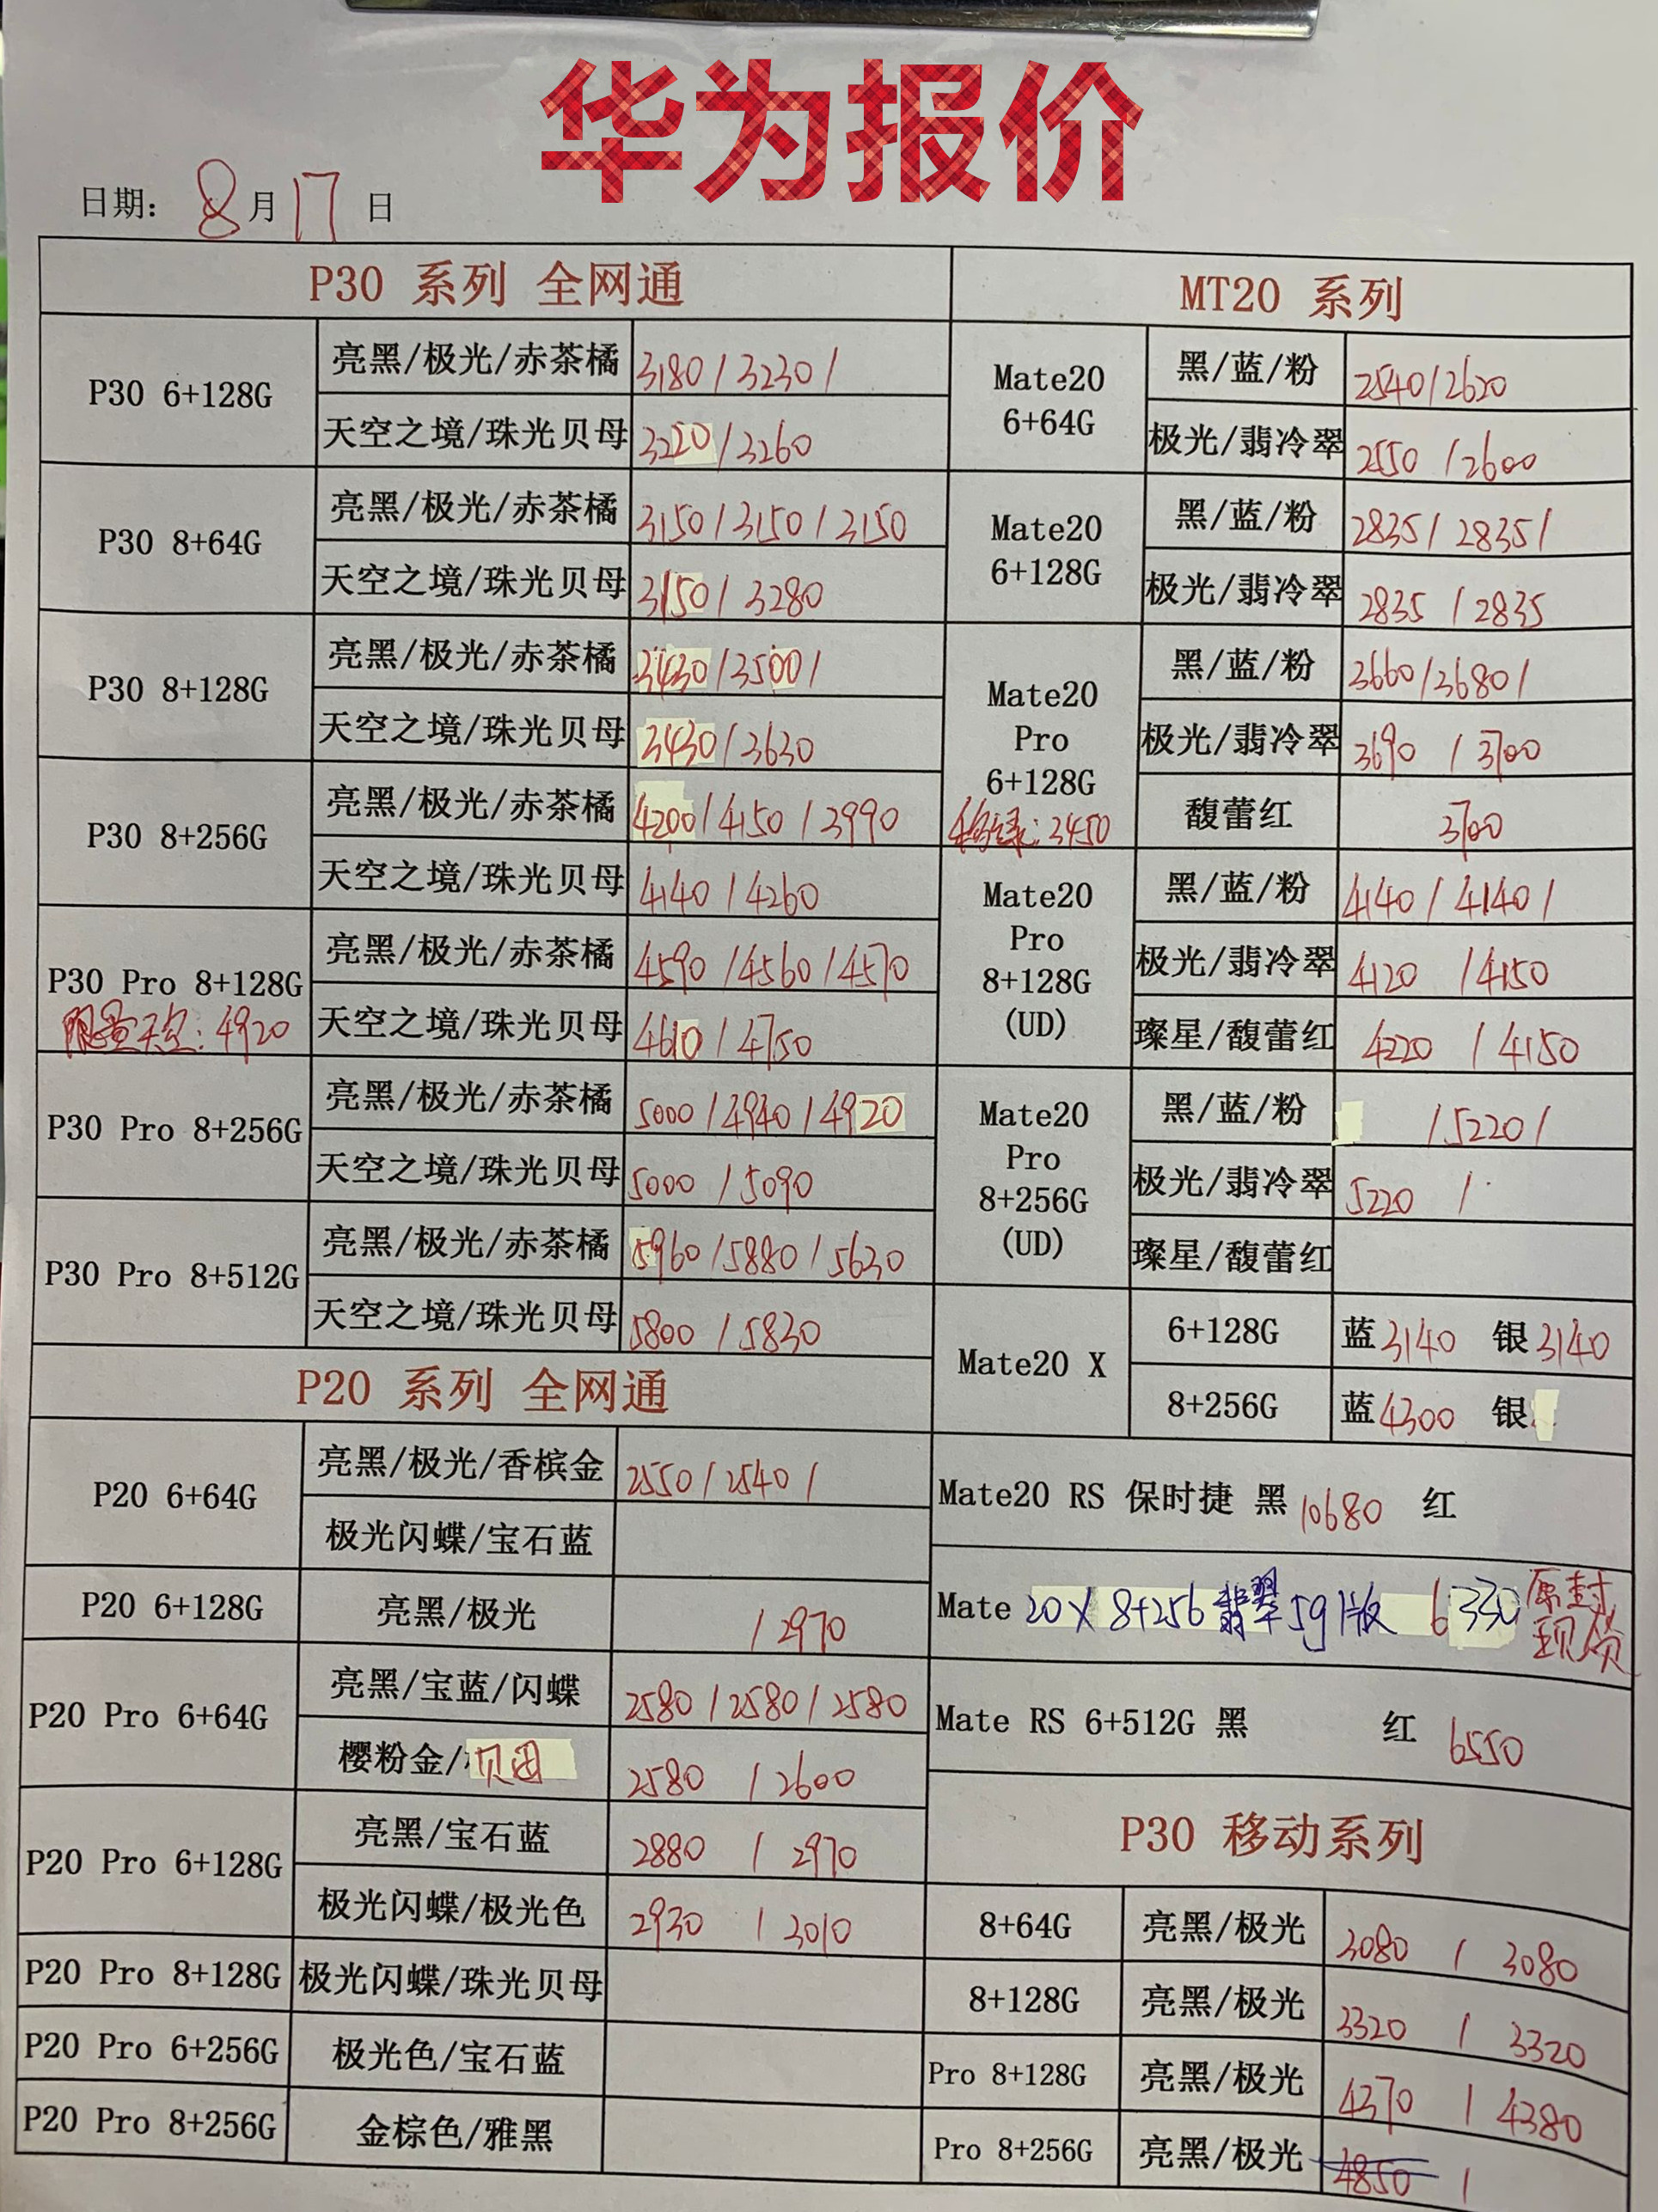 华为报价
日期: 8月17日
P30 系列 全网通
P30 6+128G
亮黑/极光/赤茶橘 3180/3230/
天空之境/珠光贝母 3220/3260
P30 8+64G
亮黑/极光/赤茶橘 3150/3150/3150
天空之境/珠光贝母 3150/3280
P30 8+128G
亮黑/极光/赤茶橘 3430/3500/
天空之境/珠光贝母 3430/3630
P30 8+256G
亮黑/极光/赤茶橘 4200/4150/3990
天空之境/珠光贝母 4140/4260
P30 Pro 8+128G
限量天空:4920
亮黑/极光/赤茶橘 4590/4560/4570
天空之境/珠光贝母 4610/4750
P30 Pro 8+256G
亮黑/极光/赤茶橘 5000/4940/4920
天空之境/珠光贝母 5000/5090
P30 Pro 8+512G
亮黑/极光/赤茶橘 5960/5880/5630
天空之境/珠光贝母 5800/5830
P20 系列 全网通
P20 6+64G
亮黑/极光/香槟金 2550/2540/
极光闪蝶/宝石蓝
P20 6+128G 亮黑/极光 /2970
P20 Pro 6+64G
亮黑/宝蓝/闪蝶 2580/2580/2580
樱粉金/贝母 2580/2600
P20 Pro 6+128G
亮黑/宝石蓝 2880/2970
极光闪蝶/极光色 2930/3010
P20 Pro 8+128G 极光闪蝶/珠光贝母
P20 Pro 6+256G 极光色/宝石蓝
P20 Pro 8+256G 金棕色/雅黑
MT20 系列
Mate20
6+64G
黑/蓝/粉 2540/2620
极光/翡冷翠 2550/2600
Mate20
6+128G
黑/蓝/粉 2835/2835/
极光/翡冷翠 2835/2835
Mate20
Pro
6+128G
:3450
黑/蓝/粉 3660/3680/
极光/翡冷翠 3690/3700
馥蕾红 3700
Mate20
Pro
8+128G
(UD)
黑/蓝/粉 4140/4140/
极光/翡冷翠 4120/4150
璨星/馥蕾红 4220/4150
Mate20
Pro
8+256G
(UD)
黑/蓝/粉 /5220/
极光/翡冷翠 5220/
璨星/馥蕾红
Mate20 X
6+128G 蓝3140 银3140
8+256G 蓝4300 银
Mate20 RS 保时捷 黑10680 红
Mate 20X 8+256 翡翠5g版 6330 原封
现货
Mate RS 6+512G 黑 红 6550
P30 移动系列
8+64G 亮黑/极光 3080/3080
8+128G 亮黑/极光 3320/3320
Pro 8+128G 亮黑/极光 4370/4380
Pro 8+256G 亮黑/极光 4850/